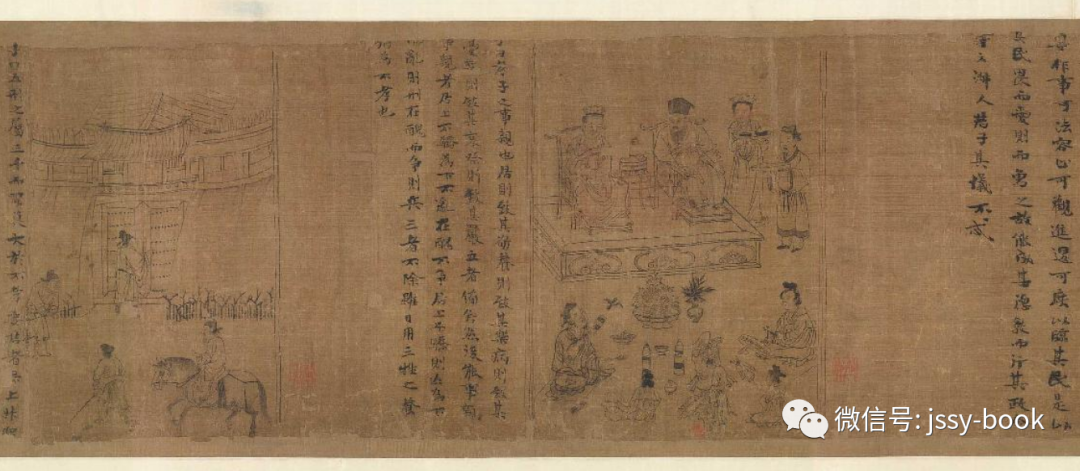 作事可法容止可觀進退可度以臨其民是以
其民畏而愛則而象之故能成其德教而行其政
令詩云淑人君子其儀不忒
子曰孝子之事親也居則致其敬養則致其樂病則致其
憂喪則致其哀祭則致其嚴五者備矣然後能事親
事親者居上不驕為下不亂在醜不爭居上而驕則亡為下
而亂則刑在醜而爭則兵三者不除雖日用三牲之養
猶為不孝也
子曰五刑之屬三千而罪莫大於不孝要君者無上非聖
微信号: jssy-book